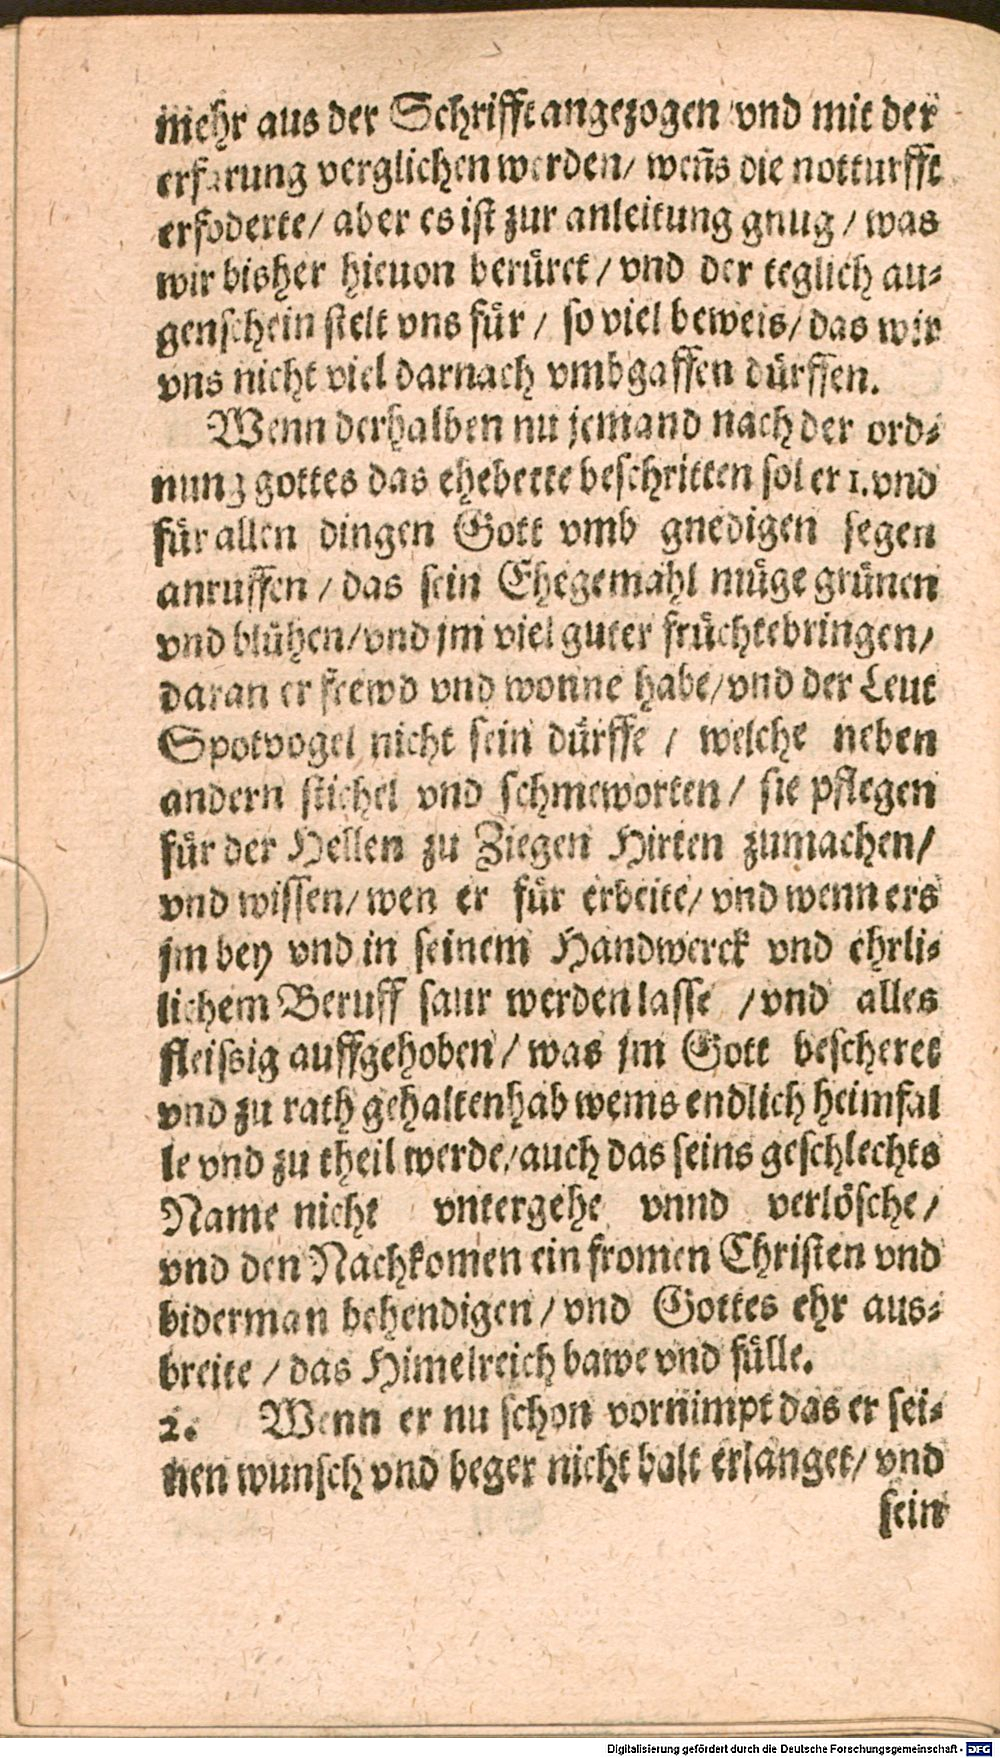 mehr aus der Schrifft angezogen vnd mit der
erfarung verglichen werden/ weñs die notturfft
erfoderte/ aber es ist zur anleitung gnug / was
wir bisher hieuon berüret / vnd der teglich au-
genschein stelt vns für / so viel beweis/ das wir
vns nicht viel darnach vmbgaffen dürffen.
Wenn derhalben nu jemand nach der ord-
nung gottes das ehebette beschritten sol er 1. vnd
für allen dingen Gott vmb gnedigen segen
anruffen / das sein Ehegemahl müge grünen
vnd blühen/ vnd jm viel guter früchte bringen/
daran er frewd vnd wonne habe/ vnd der Leut
Spotvogel nicht sein dürffe / welche neben
andern stichel vnd schmeworten / sie pflegen
für der Hellen zu Ziegen Hirten zumachen/
vnd wissen/ wen er für erbeite/ vnd wenn ers
jm bey vnd in seinem Handwerck vnd ehrli-
lichem Beruff saur werden lasse / vnd alles
fleissig auffgehoben / was jm Gott bescheret
vnd zu rath gehalten hab wems endlich heimfal
le vnd zu theil werde/ auch das seins geschlechts
Name nicht vntergehe vnnd verlösche/
vnd den Nachkomen ein fromen Christen vnd
biderman behendigen / vnd Gottes ehr aus-
breite / das Himelreich bawe vnd fülle.
2. Wenn er nu schon vornimpt das er sei-
nen wunsch vnd beger nicht balt erlanget/ vnd
sein
Digitalisierung gefördert durch die Deutsche Forschungsgemeinschaft - DFG